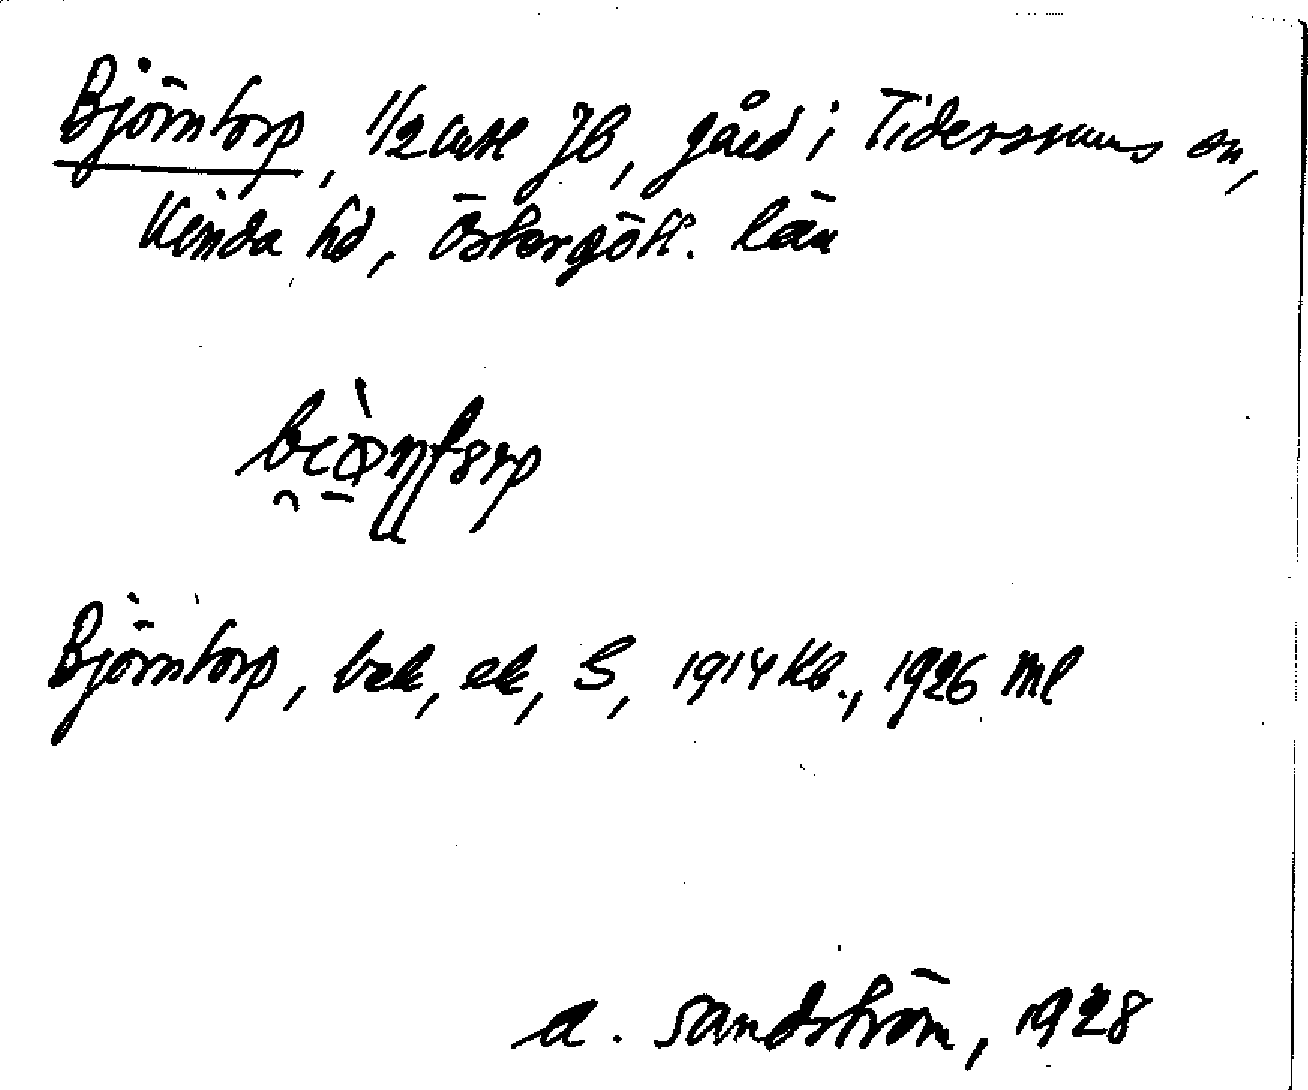 Björntorp, 1/2 mtl JB, gård i Tidersrums sn,
Kinda hd, Östergötl. län
Björntorp, bek, ek, S, 1914 Kb., 1926 Ml
A. Sandström, 1928